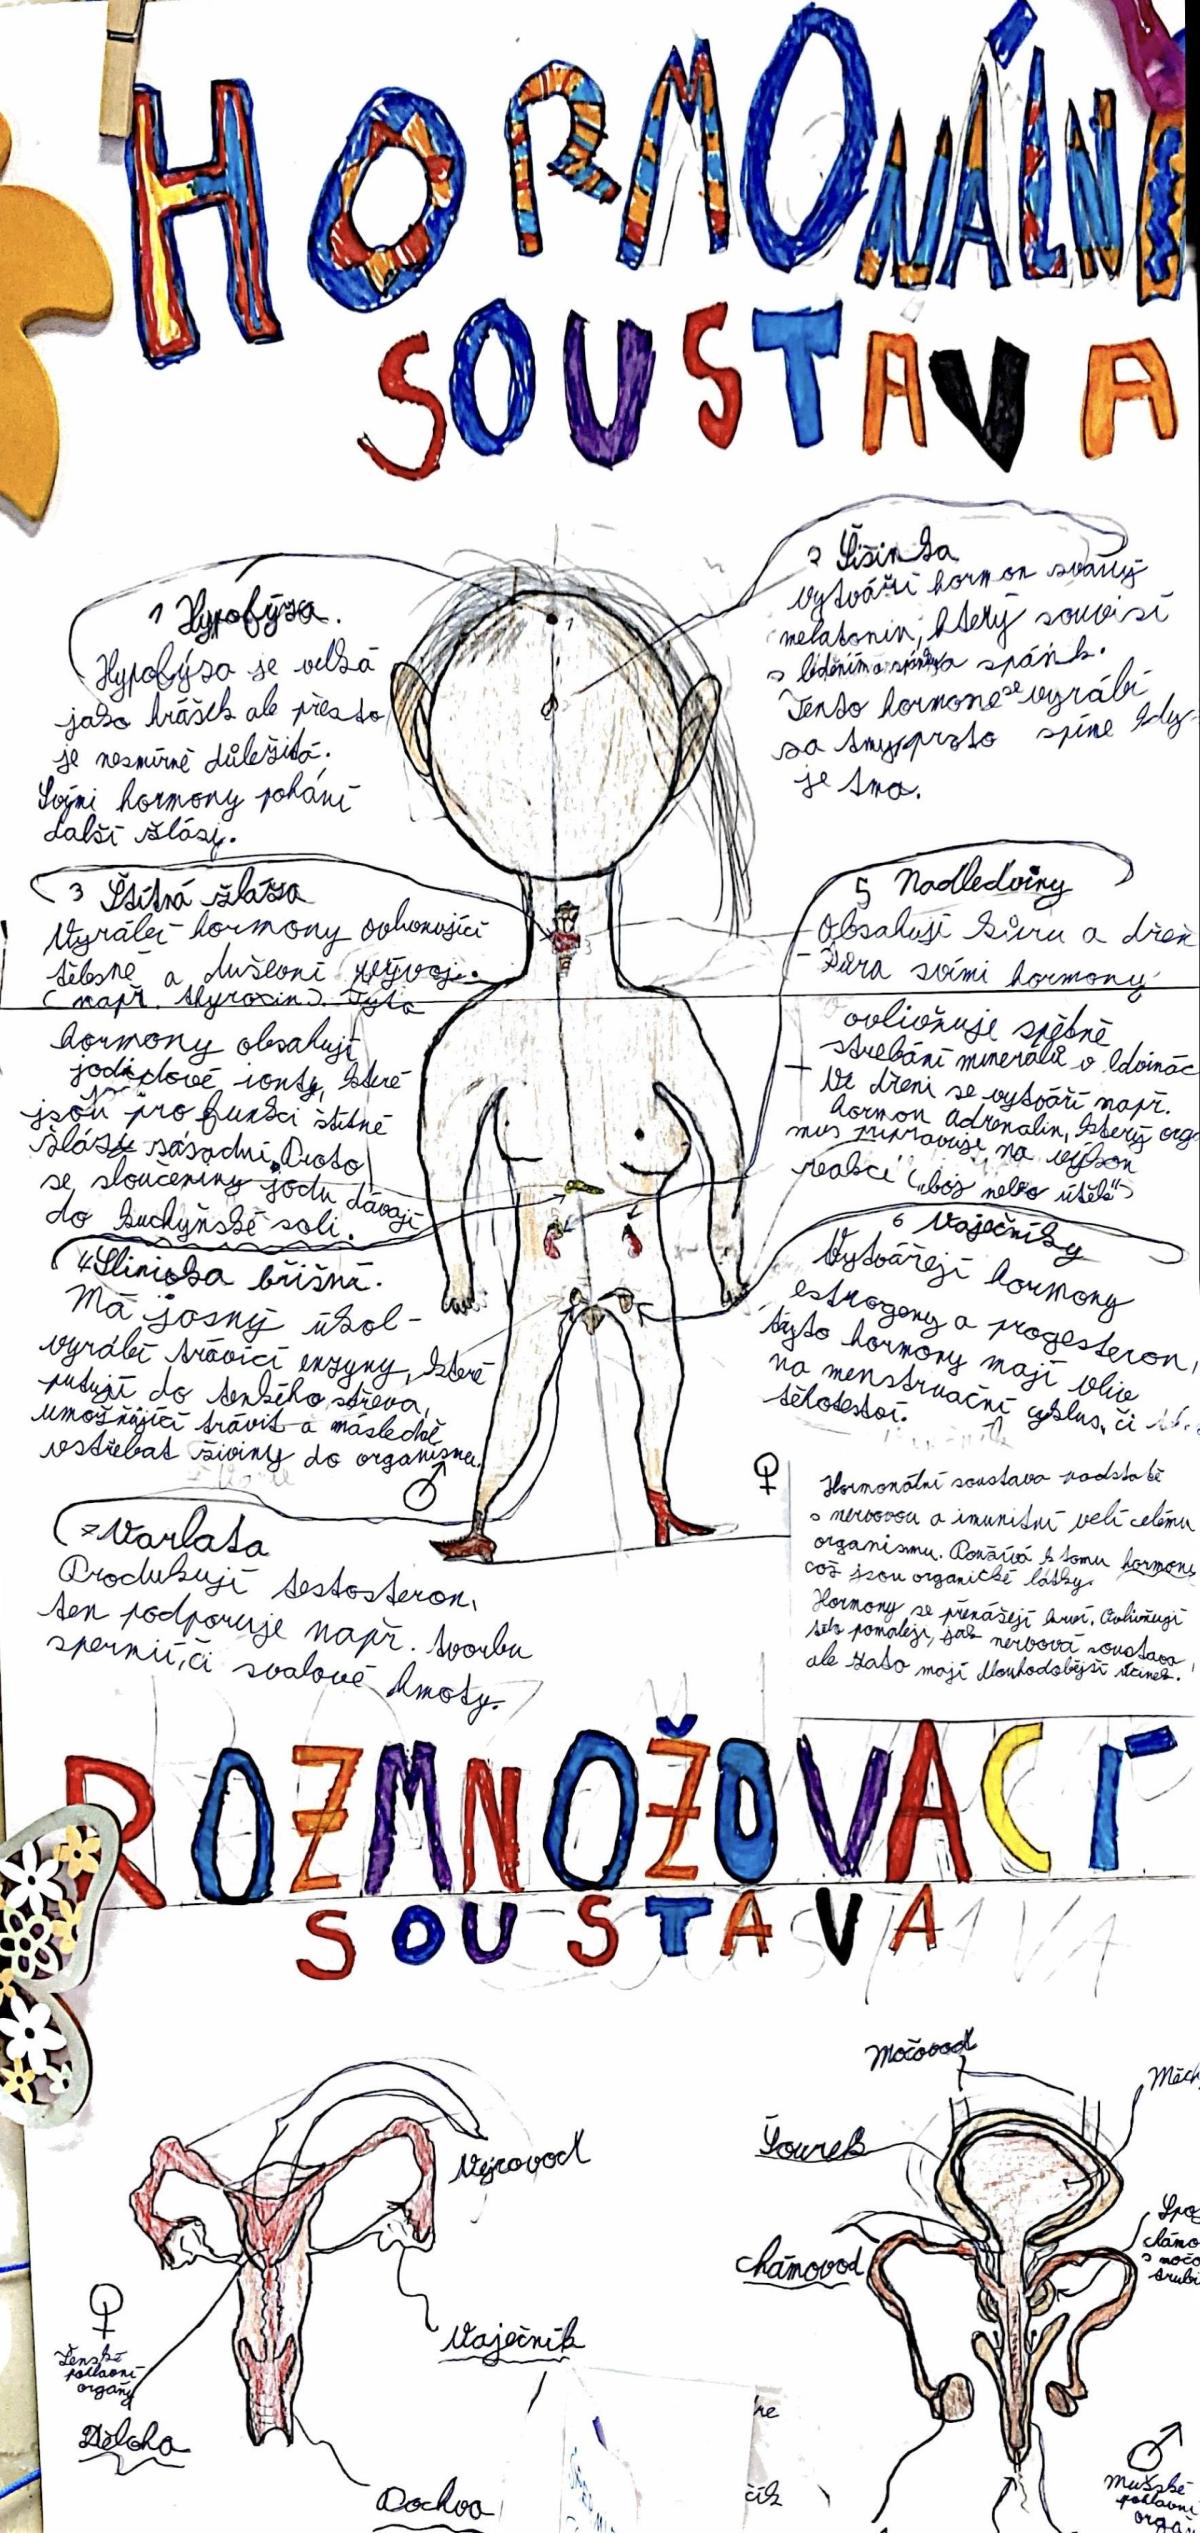 HORMONÁLNÍ
SOUSTAVA
1 Hypofýza.
Hypofýza je velká
jako hrášek ale přesto
je nesmírně důležitá.
Svými hormony pohání
další žlázy.
2 Šišinka
Vytváří hormon zvaný
melatonin, který souvisí
s bděním a spánk.
Tento hormone se vyrábí
za tmy proto spíme když
je tma.
3 Štítná žláza
Vyrábí hormony ovlivňující
tělesné a duševní vývoj.
(např. thyroxin). Tyto
hormony obsahují
jodidové ionty, které
jsou pro funkci štítné
žlázy zásadní. Proto
se sloučeniny jodu dávají
do kuchyňské soli.
5 Nadledviny
Obsahují kůru a dřeň
Kůra svími hormony
ovlivňuje zpětné
vstřebání minerálů v ledvinác
Ve dřeni se vytváří např.
hormon adrenalin, který org
mus připravuje na výkon
reakci („boj nebo útěk“)
4 Slinivka břišní.
Má jasný úkol -
vyrábí trávicí enzymy, které
putují do tenkého střeva,
umožňující trávit a následně
vstřebat živiny do organismu.
♂
6 Vaječníky
Vytvářejí hormony
estrogeny a progesteron,
tyto hormony mají vliv
na menstruační cyklus, či
těhoteství.
♀
7 Varlata
Produkují testosteron,
ten podporuje např. tvorbu
spermií, či svalové hmoty.
Hormonální soustava podstatě
s nervovou a imunitní velí celému
organismu. Používá k tomu hormony
což jsou organické látky.
Hormony se přenášejí krví. Ovlivňují
tělo pomaleji, jak nervová soustava,
ale zato mají dlouhodobější účinek.
ROZMNOŽOVACÍ
SOUSTAVA
Močovod
Měch
Šourek
Vejcovod
Chámovod
Vaječník
♀
Ženské
pohlavní
orgány
Děloha
Pochva
♂
Mužské
pohlavní
orgá